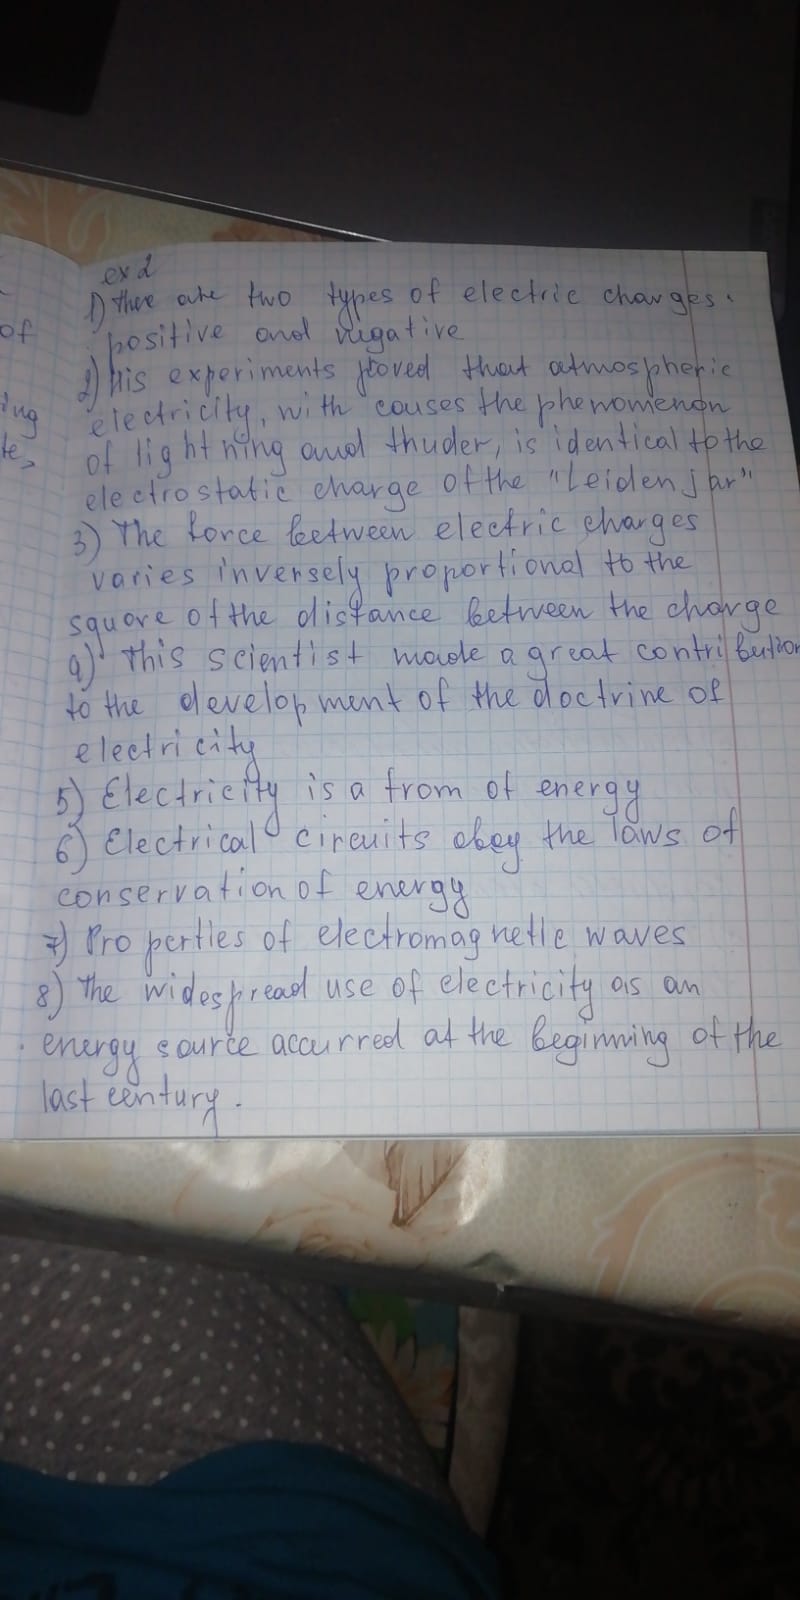 ex 2
1) there are two types of electric charges.
positive and negative
2) His experiments proved that atmospheric
electricity, with couses the phenomenon
of lightning and thuder, is identical to the
electrostatic charge of the "Leiden jar"
3) The force between electric charges
varies inversely proportional to the
square of the distance between the charge
4) This scientist made a great contribution
to the development of the doctrine of
electricity
5) Electricity is a from of energy
6) Electrical circuits obey the laws of
conservation of energy
7) Properties of electromagnetic waves
8) The widespread use of electricity as an
energy source accurred at the beginning of the
last century.
of
ing